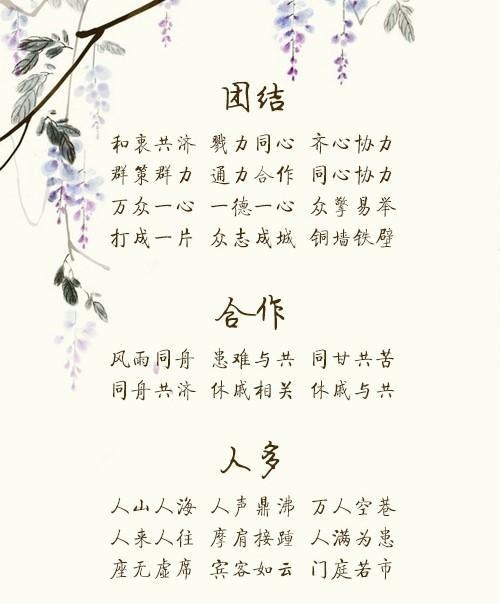 团结
和衷共济 戮力同心 齐心协力
群策群力 通力合作 同心协力
万众一心 一德一心 众擎易举
打成一片 众志成城 铜墙铁壁
合作
风雨同舟 患难与共 同甘共苦
同舟共济 休戚相关 休戚与共
人多
人山人海 人声鼎沸 万人空巷
人来人往 摩肩接踵 人满为患
座无虚席 宾客如云 门庭若市